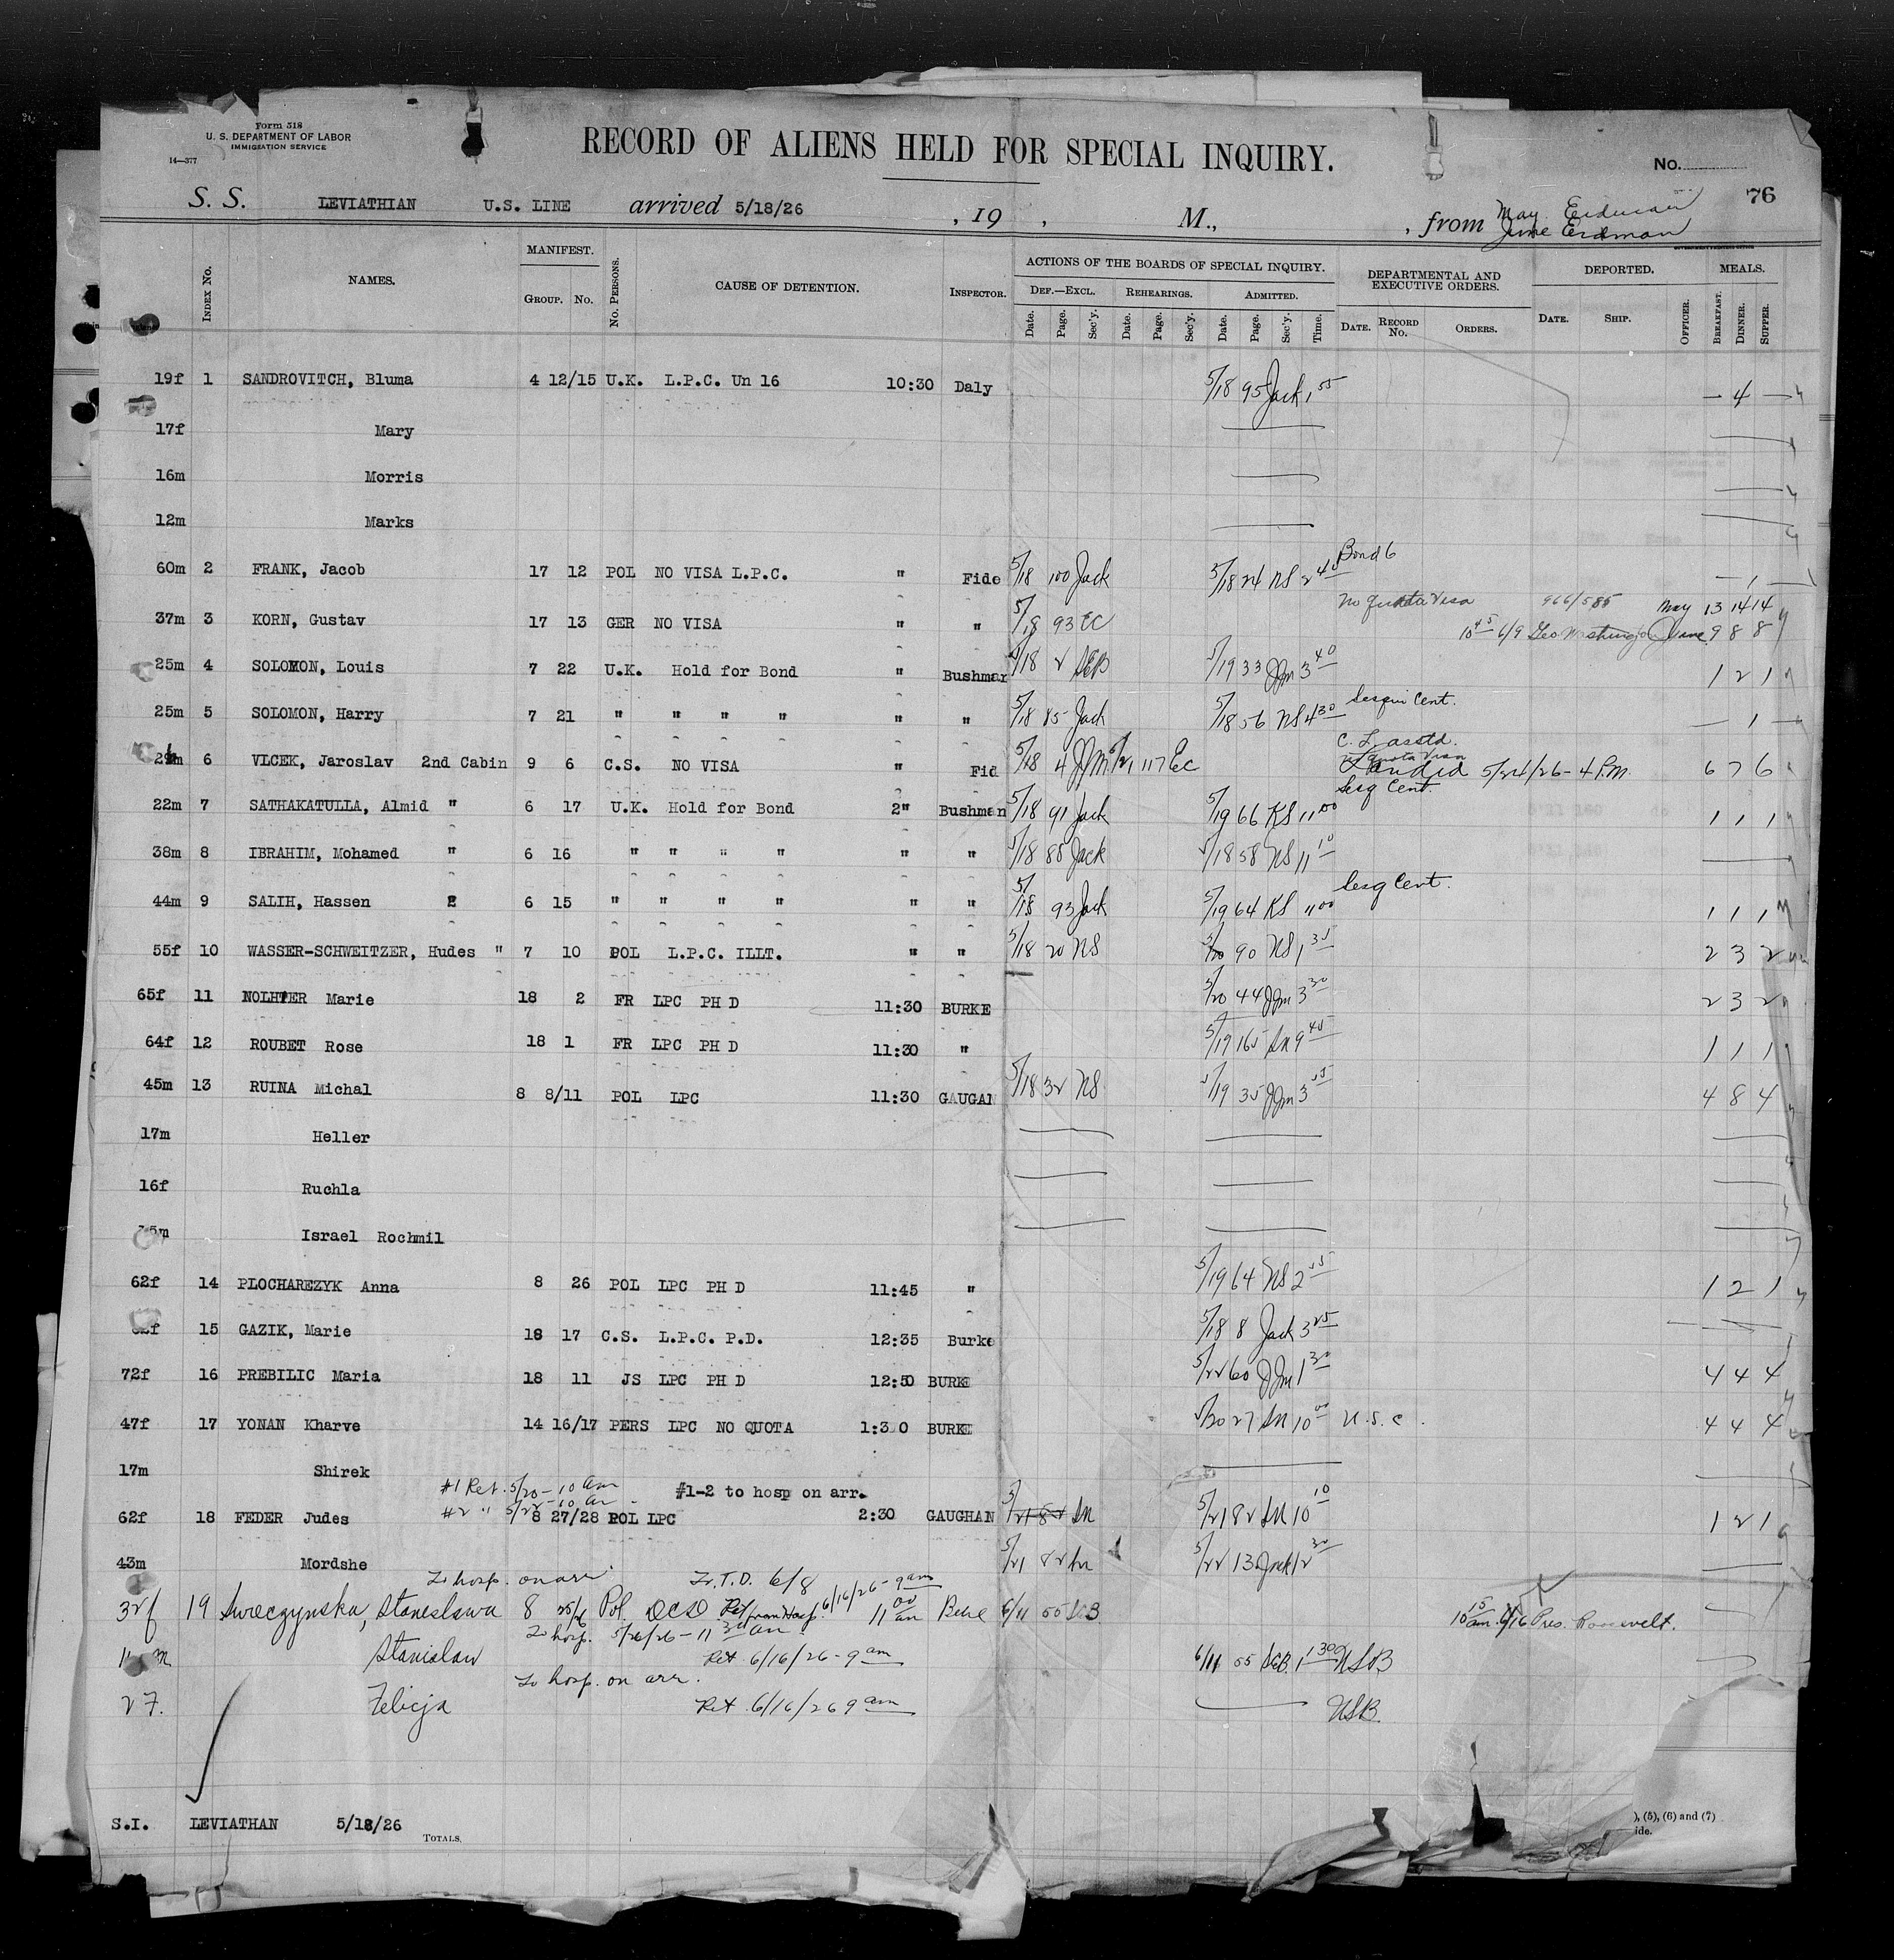 Form 518
U. S. DEPARTMENT OF LABOR
IMMIGRATION SERVICE
14—377
RECORD OF ALIENS HELD FOR SPECIAL INQUIRY.
No.
76
S. S. LEVIATHIAN U.S. LINE arrived 5/18/26 , 19 , M., , from May Erdman
June Erdman
INDEX No. NAMES. MANIFEST. GROUP. No. No. PERSONS. CAUSE OF DETENTION. INSPECTOR. ACTIONS OF THE BOARDS OF SPECIAL INQUIRY. DEPARTMENTAL AND EXECUTIVE ORDERS. DEPORTED. MEALS.
DEF.—EXCL. REHEARINGS. ADMITTED.
Date. Page. Sec'y. Date. Page. Sec'y. Date. Page. Sec'y. Time. DATE. RECORD No. ORDERS. DATE. SHIP. OFFICER. BREAKFAST. DINNER. SUPPER.
19f 1 SANDROVITCH, Bluma 4 12/15 U.K. L.P.C. Un 16 10:30 Daly 5/18 95 Jack 1 55 — 4 —
17f Mary
16m Morris
12m Marks
Bond 6
60m 2 FRANK, Jacob 17 12 POL NO VISA L.P.C. " Fide 5/18 100 Jack 5/18 24 NS 2 45 — 1 —
No Quota Visa 966/585 May 13 14 14
37m 3 KORN, Gustav 17 13 GER NO VISA " " 5/18 93 EC 10 45 6/9 Geo Washington June 9 8 8
25m 4 SOLOMON, Louis 7 22 U.K. Hold for Bond " Bushman 5/18 2 SEB 5/19 33 JJM 3 40 1 2 1
25m 5 SOLOMON, Harry 7 21 " " " " " " 5/18 85 Jack 5/18 56 NS 4 30 Sesqui Cent. — 1 —
C. L. asstd.
Quota Visa
29m 6 VLCEK, Jaroslav 2nd Cabin 9 6 C.S. NO VISA " Fid 5/18 4 JJM 5/21 117 EC Landed 5/24/26 - 4 P.M. 6 7 6
Sesq Cent.
22m 7 SATHAKATULLA, Almid " 6 17 U.K. Hold for Bond 2" Bushman 5/18 91 Jack 5/19 66 KS 11 00 1 1 1
38m 8 IBRAHIM, Mohamed " 6 16 " " " " " " 5/18 85 Jack 5/18 58 NS 11 10
44m 9 SALIH, Hassen 2 6 15 " " " " " " 5/18 93 Jack 5/19 64 KS 11 00 Sesq Cent. 1 1 1
55f 10 WASSER-SCHWEITZER, Hudes " 7 10 POL L.P.C. ILLT. " " 5/18 20 NS 5/20 90 NS 1 35 2 3 2
65f 11 NOLHTER Marie 18 2 FR LPC PH D 11:30 BURKE 5/20 44 JJM 3 30 2 3 2
64f 12 ROUBET Rose 18 1 FR LPC PH D 11:30 " 5/19 165 SM 9 45 1 1 1
45m 13 RUINA Michal 8 8/11 POL LPC 11:30 GAUGAN 5/18 32 NS 5/19 35 JJM 3 55 4 8 4
17m Heller
16f Ruchla
Israel Rochmil
62f 14 PLOCHAREZYK Anna 8 26 POL LPC PH D 11:45 " 5/19 64 NS 2 55 1 2 1
15 GAZIK, Marie 18 17 C.S. L.P.C. P.D. 12:35 Burke 5/18 8 Jack 3 25
72f 16 PREBILIC Maria 18 11 JS LPC PH D 12:50 BURKE 5/22 60 JJM 1 30 4 4 4
47f 17 YONAN Kharve 14 16/17 PERS LPC NO QUOTA 1:30 BURKE 5/20 27 SM 10 00 U.S.C. 4 4 4
17m Shirek
#1 Ret. 5/20 - 10 am #1-2 to hosp on arr.
#2 " 5/22 - 10 am
62f 18 FEDER Judes 8 27/28 POL LPC 2:30 GAUGHAN 5/21 82 SM 5/21 82 SM 10 10 1 2 1
43m Mordshe 5/21 82 SM 5/22 13 Jack 12 30
To hosp. on arr. Tr. T.D. 6/8
32f 19 Swieczynska, Stanislawa 8 25/26 Pol. Ret from Hosp. 6/16/26 - 9 am 11 00 am 6/11 55 SEB 10 15 am 6/16 Pres. Roosevelt.
To hosp. 5/26/26 - 11 30 am
m Stanislaw Ret 6/16/26 - 9 am 6/11 55 SEB 1 30 NSB
To hosp. on arr.
2 F. Felicja Ret 6/16/26 9 am NSB
S.I. LEVIATHAN 5/18/26
TOTALS.
), (5), (6) and (7)
ide.